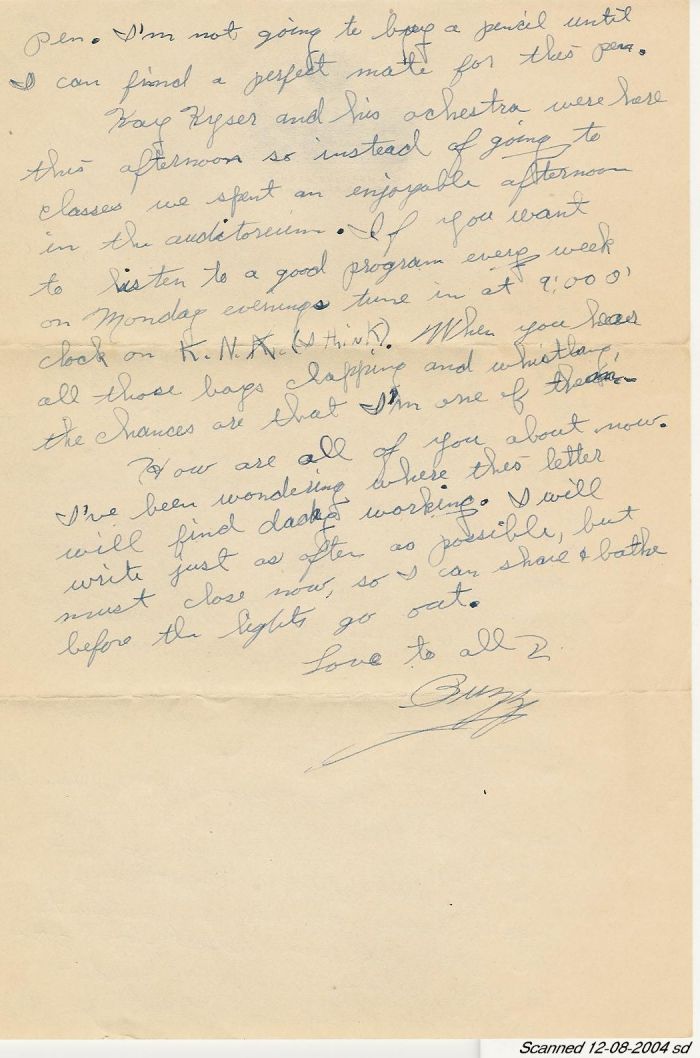 Pen. I'm not going to buy a pencil until
I can find a perfect mate for this pen.
Kay Kyser and his ochestra were here
this afternoon so instead of going to
classes we spent an enjoyable afternoon
in the auditorium. If you want
to listen to a good program every week
on Monday evenings tune in at 9:00 o'
clock on K.N.X. (I thinK). When you hear
all those boys clapping and whistling,
the chances are that I'm one of them.
How are all of you about now.
I've been wondering where this letter
will find daddy working. I will
write just as often as possible, but
must close now, so I can shave & bathe
before the lights go out.
Love to all
Buzz
Scanned 12-08-2004 sd